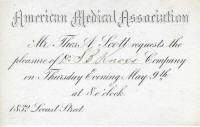 American Medical Association
Mr. Thos. A. Scott requests the
pleasure of Dr. Knox's Company
on Thursday Evening May 9th
at 8 o'clock.
1832 Locust Street.